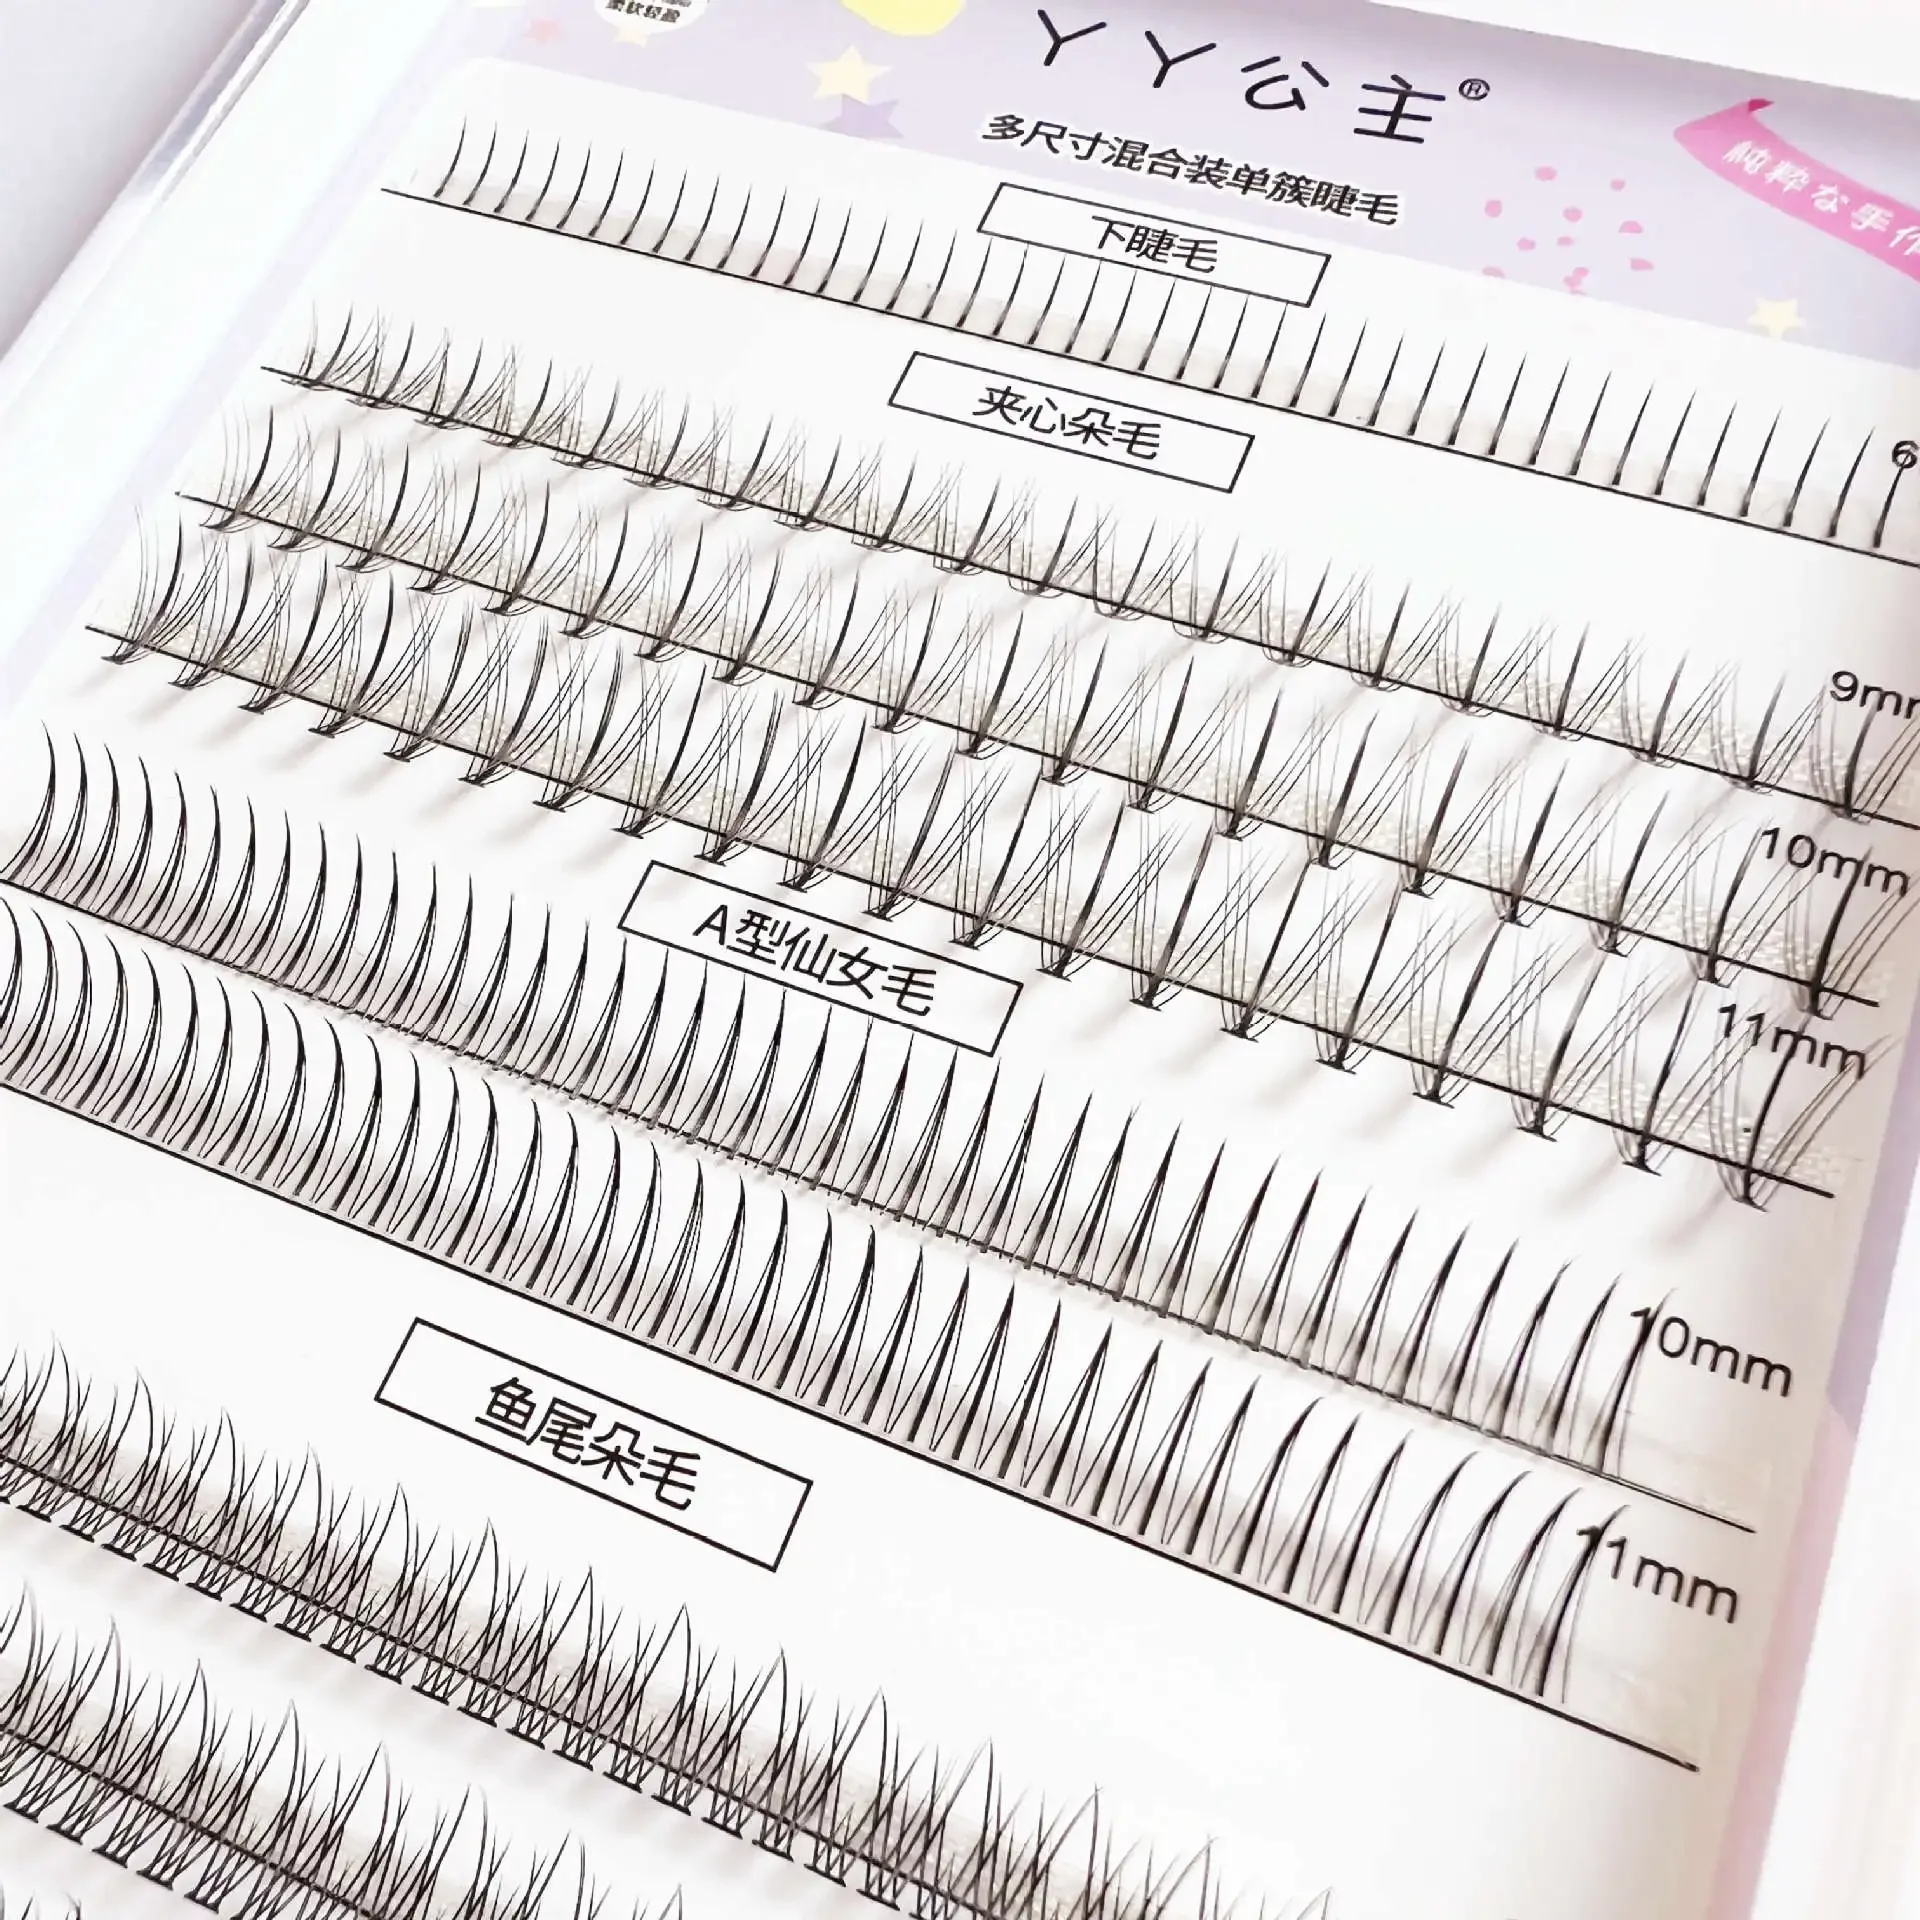 柔软轻盈
丫丫公主®
多尺寸混合装单簇睫毛
純粋な手作
下睫毛
6
夹心朵毛
9mm
10mm
11mm
A型仙女毛
10mm
11mm
鱼尾朵毛